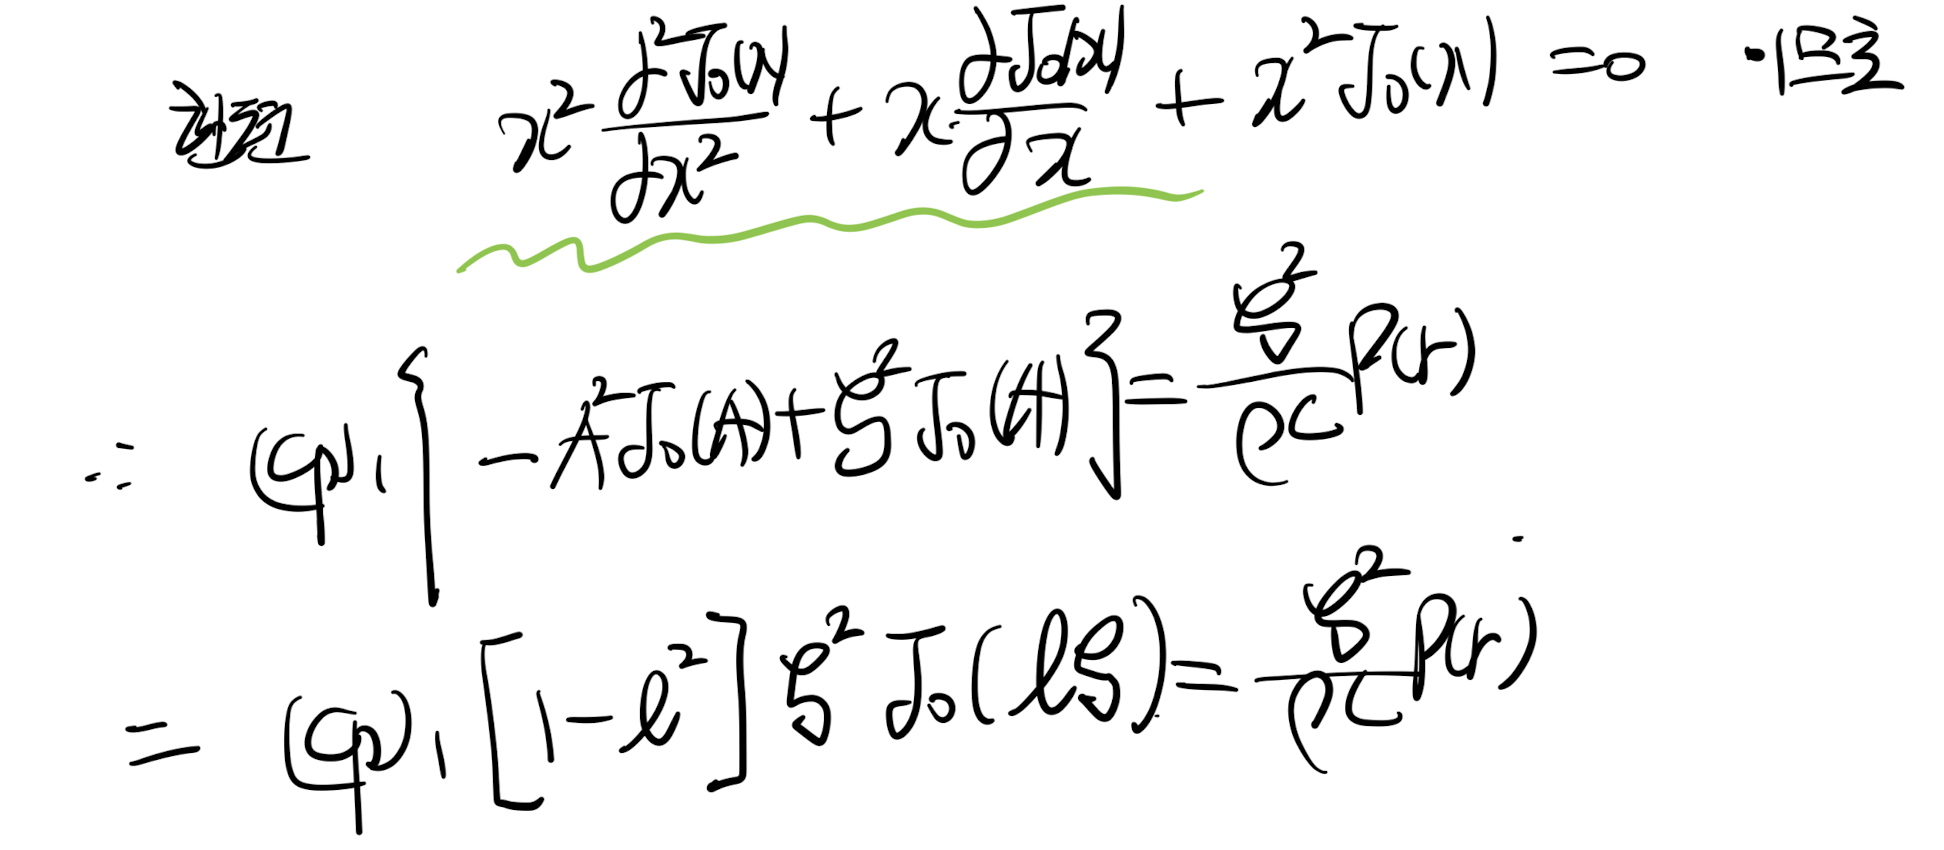 x² ∂²J₀(x)/∂x² + x ∂J₀(x)/∂x + x² J₀(x) = 0
∴ φ₁ { -A² J₀(A) + ξ² J₀(A) } = ξ²/ρc P(r)
= φ₁ [1-l²] ξ² J₀(lξ) = ξ²/ρc P(r)